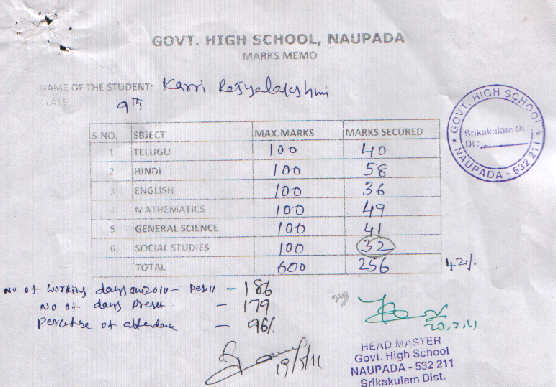 GOVT. HIGH SCHOOL, NAUPADA
MARKS MEMO
NAME OF THE STUDENT: Karri Rajyalakshmi
9th
S NO. SBJECT MAX.MARKS MARKS SECURED
1 TELUGU 100 40
2 HINDI 100 58
3 ENGLISH 100 36
MATHEMATICS 100 49
5 GENERAL SCIENCE 100 41
6 SOCIAL STUDIES 100 32
TOTAL 600 256 42%
No of working days 2010 - 186
No of days Present - 179
of attendance - 96%
19/5/11
HEAD MASTER
Govt. High School
NAUPADA - 532 211
Srikakulam Dist.
GOVT. HIGH SCHOOL
Srikakulam Dt.
NAUPADA - 532 211